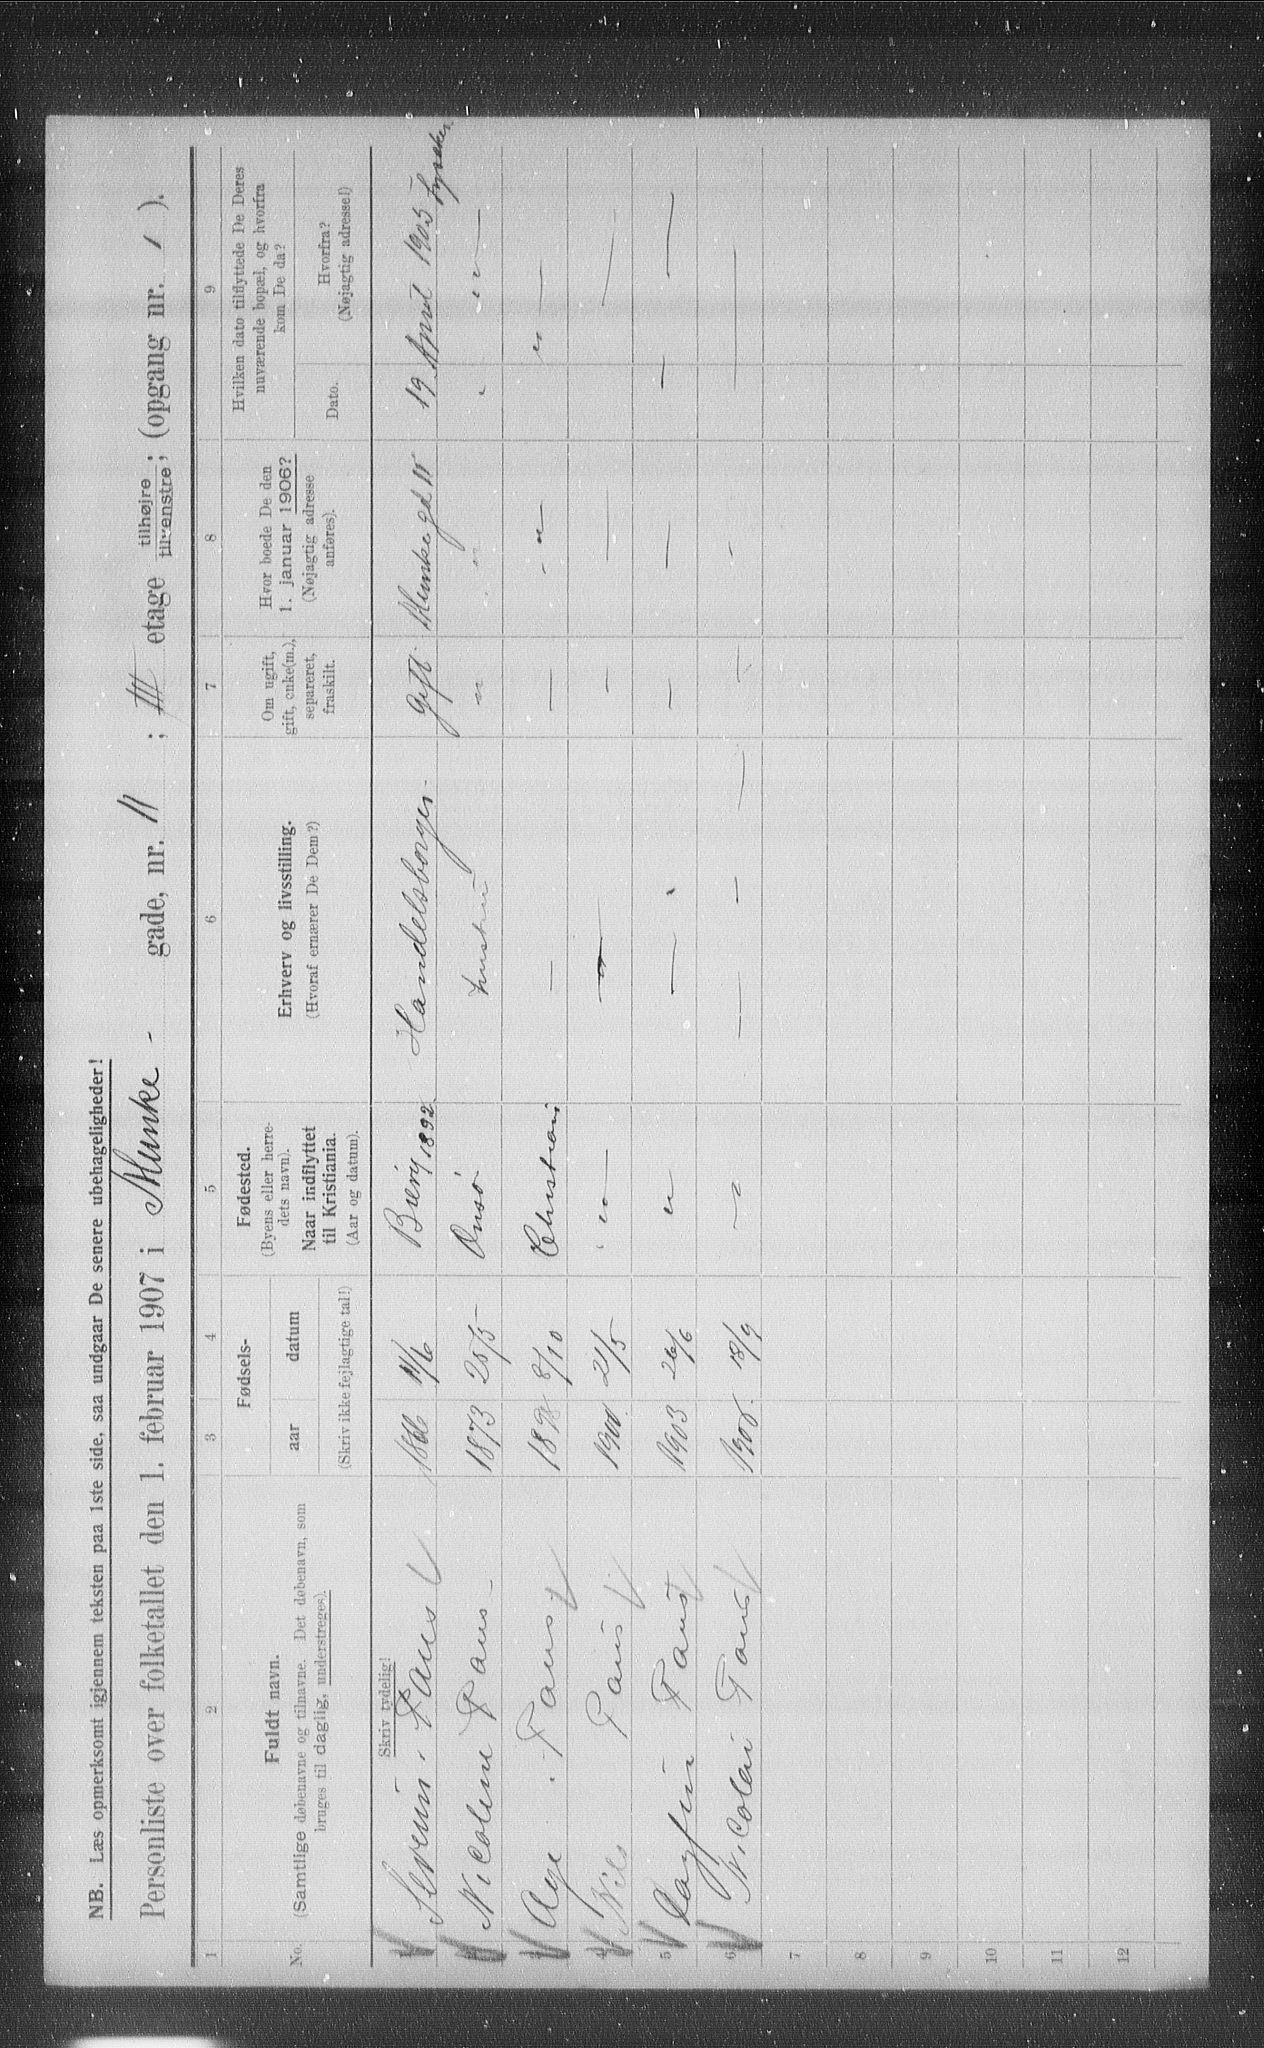 NB. Læs opmerksomt igjennem teksten paa 1ste side, saa undgaar De senere ubehageligheder!
Personliste over folketallet den 1. februar 1907 i Munke - gade, nr. 11 ; III etage tilhøjre tilvenstre ; (opgang nr. 1 ).
1 2 3 4 5 6 7 8 9
No.
Fuldt navn.
(Samtlige døbenavne og tilnavne. Det døbenavn, som
bruges til daglig, understreges).
Fødsels-
aar datum
(Skriv ikke fejlagtige tal!)
Fødested.
(Byens eller herre-
dets navn).
Naar indflyttet
til Kristiania.
(Aar og datum).
Erhverv og livsstilling.
(Hvoraf ernærer De Dem?)
Om ugift,
gift, enke(m.),
separeret,
fraskilt.
Hvor boede De den
1. januar 1906?
(Nøjagtig adresse
anføres).
Hvilken dato tilflyttede De Deres
nuværende bopæl, og hvorfra
kom De da?
Dato.
Hvorfra?
(Nøjagtig adresse!)
Skriv tydelig!
1 Severin Paus 1866 11/6 1892 Handelsborger gift Munkegd 11 19 April 1905 Lysaker
2 Nicoline Paus 1873 25/5 Onsø hustru " " "
3 Age Paus 1898 8/10 Christiania — — " "
4 Nils Paus 1900 21/5 " " — — —
5 Dagfin Paus 1903 26/6 " — — — — —
6 Nicolai Paus 18/9 " — — — — —
7
8
9
10
11
12